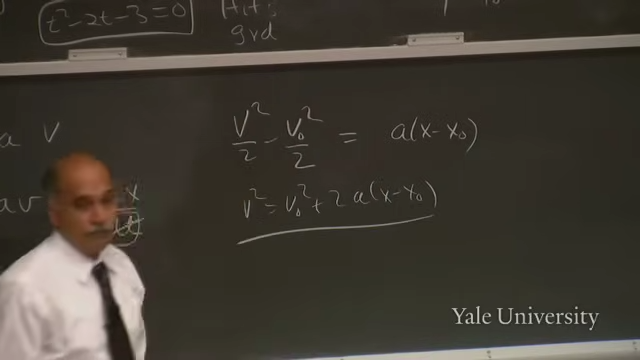 t² - 2t - 3 = 0
Hit:
grd
a v
v²/2 - v₀²/2 = a(x - x₀)
av x
v² = v₀² + 2 a(x - x₀)
Yale University